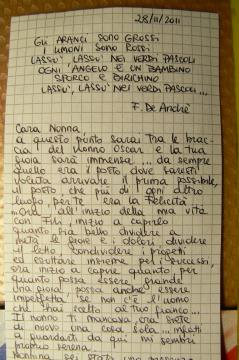 28/11/2011
GLI ARANCI SONO GROSSI
I LIMONI SONO ROSSI
LASSÙ, LASSÙ NEI VERDI PASCOLI
OGNI ANGELO È UN BAMBINO
SPORCO E BIRICHINO
LASSÙ, LASSÙ NEI VERDI PASCOLI...
F. De Andrè
Cara Nonna,
a questo punto sarai tra le brac-
cia del nonno Oscar e la tua
gioia sarà immensa... da sempre
quello era il posto dove saresti
voluta arrivare il prima possibile,
il posto che più di ogni altro
luogo, per te era la Felicità
Ora all'inizio della mia vita
con Fili, inizio a capirlo
quanto sia bello dividere a
metà le gioie e i dolori, dividere
il letto, condividere i progetti
ed esultare insieme per i successi,
ora inizio a capire quanto, per
quanto possa essere grande
una gioia possa anche essere
imperfetta se non c'è l'uomo
che hai scelto al tuo fianco...
Il nonno ti mancava ora siete
di nuovo una cosa sola... infatti
a guardarti da qui mi sembri
proprio serena.
Nonnina sei stata una